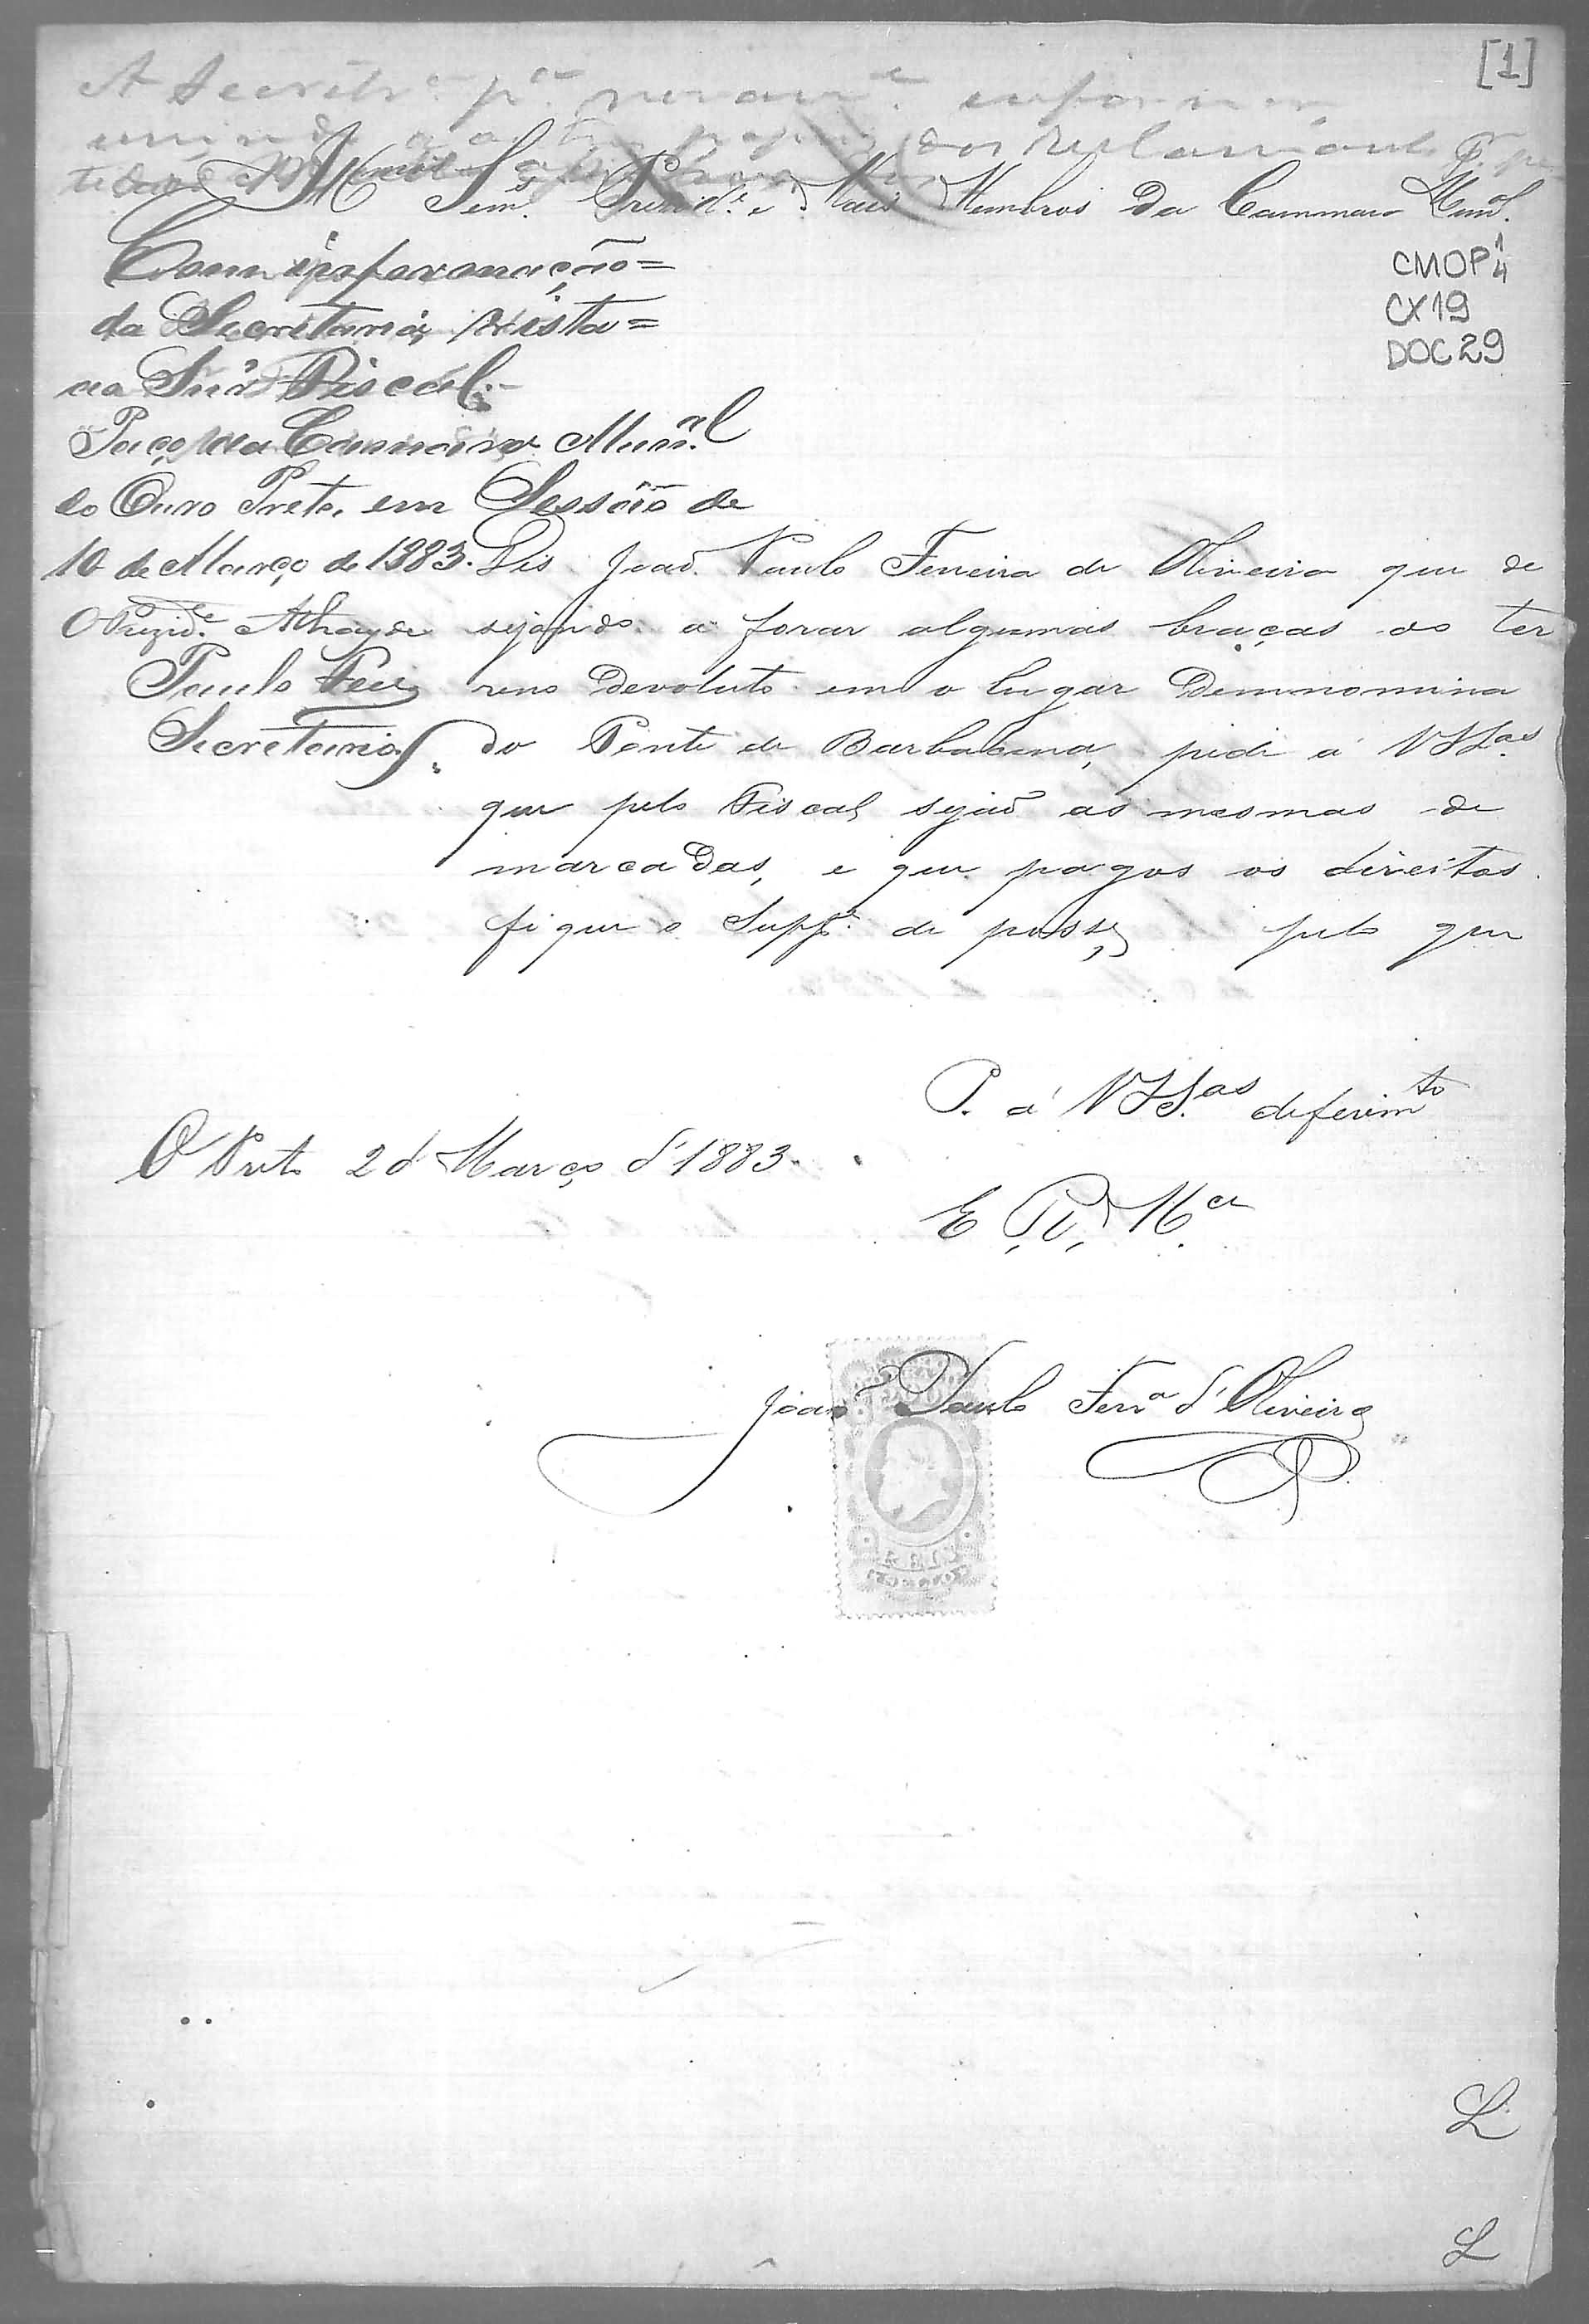 [1]
A Secretr.ª p.ª novam.e informar
dos reclamantes
Sem. Presid.e e Mais Membros Da Cammara Mun.l
CMOP 1/4
CX19
DOC 29
Com informação=
da Secretaria, vista=
ao Snr. Fiscal.
Paço da Camara Mun.al
do Ouro Preto, em Sessão de
10 de Março de 1883.
O Prezid.e Athayde
Paulo
Secretario
Dis João Paulo Ferreira de Oliveira que de
sejando a forar algumas braças do ter
reno Devoluto em o lugar Demnomina
do Ponte de Barbacena, pede á VSS.as
que pelo Fiscal sejaõ as mesmas de
marcadas, e que pagos os direitos
fique o Supp.e de posse, pelo que
P. á VSS.as deferim.to
O Preto 2 d Março d'1883.
E R M.ce
João Paulo Ferr.a d'Oliveira